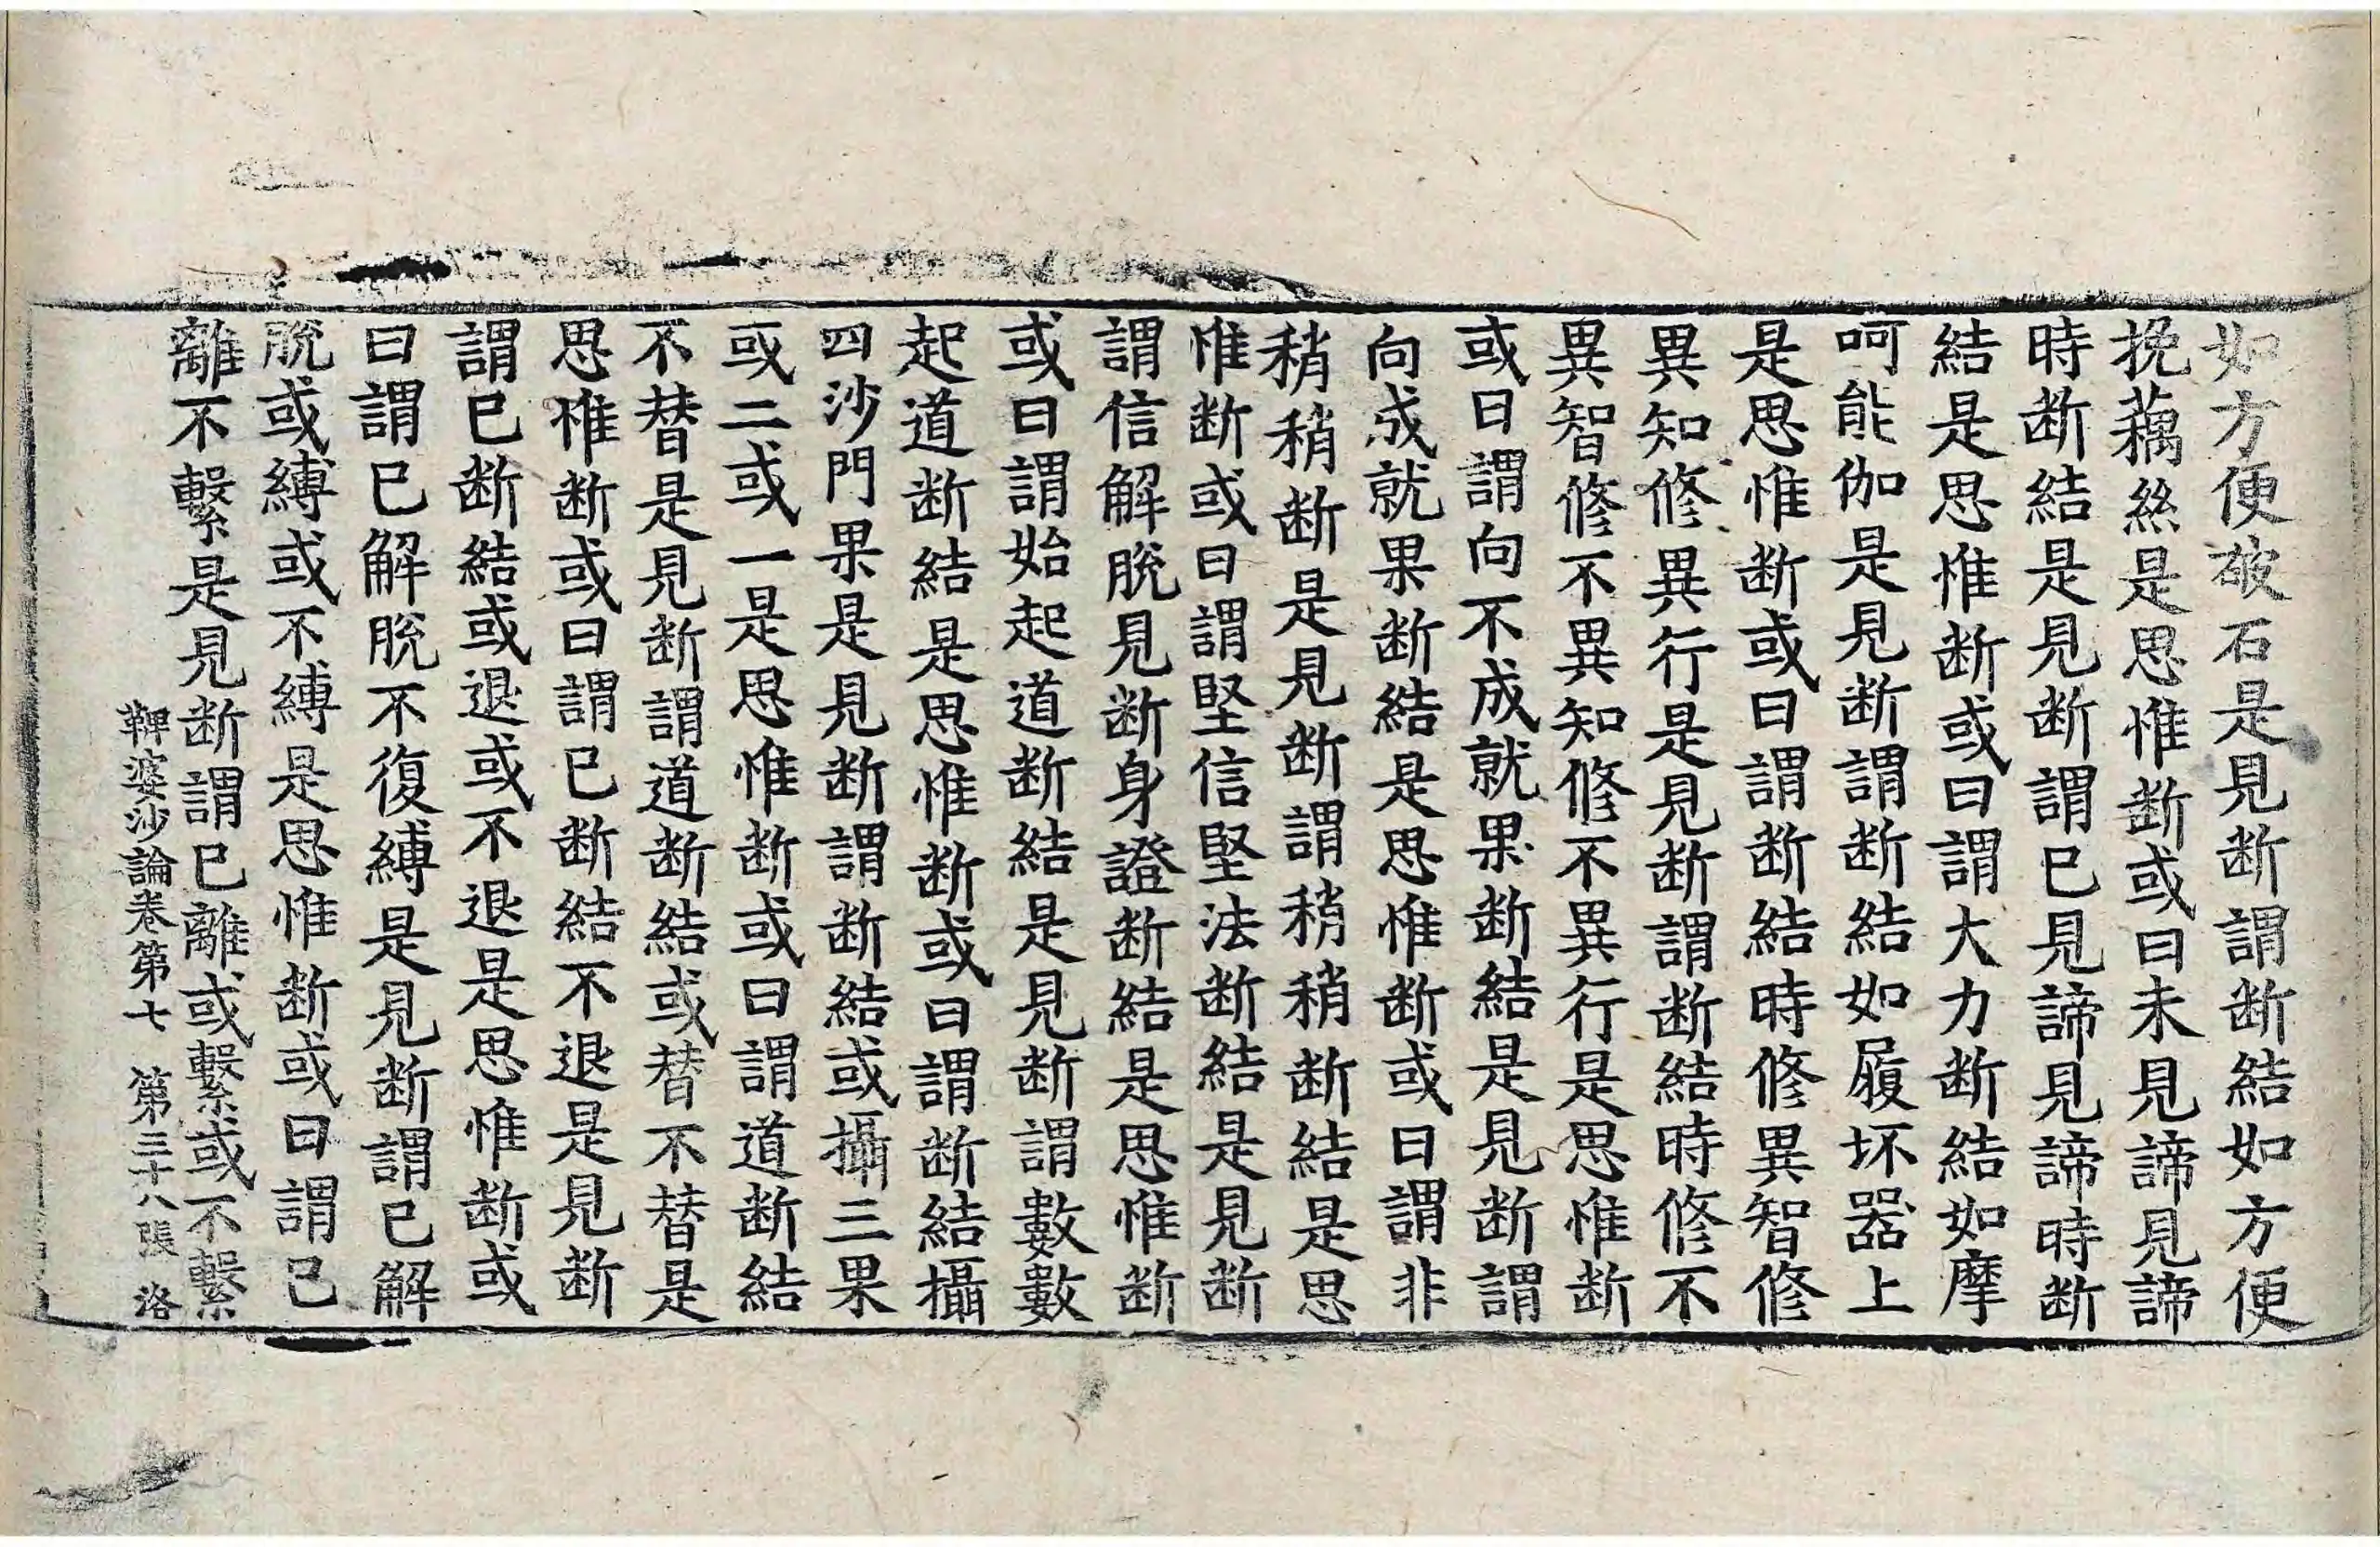 如方便破石是見断謂断結如方便
挽藕絲是思惟断或曰未見諦見諦
時断結是見断謂已見諦見諦時断
結是思惟断或曰謂大力断結如摩
呵能伽是見断謂断結如履坏器上
是思惟断或曰謂断結時修異智修
異知修異行是見断謂断結時修不
異智修不異知修不異行是思惟断
或曰謂向不成就果断結是見断謂
向成就果断結是思惟断或曰謂非
稍稍断是見断謂稍稍断結是思
惟断或曰謂堅信堅法断結是見断
謂信解脫見断身證断結是思惟断
或曰謂始起道断結是見断謂數數
起道断結是思惟断或曰謂断結攝
四沙門果是見断謂断結或攝三果
或二或一是思惟断或曰謂道断結
不替是見断謂道断結或替不替是
思惟断或曰謂已断結不退是見断
謂已断結或退或不退是思惟断或
曰謂已解脫不復縛是見断謂已解
脫或縛或不縛是思惟断或曰謂已
離不繫是見断謂已離或繫或不繫
鞞婆沙論卷第七 第三十八張 洛